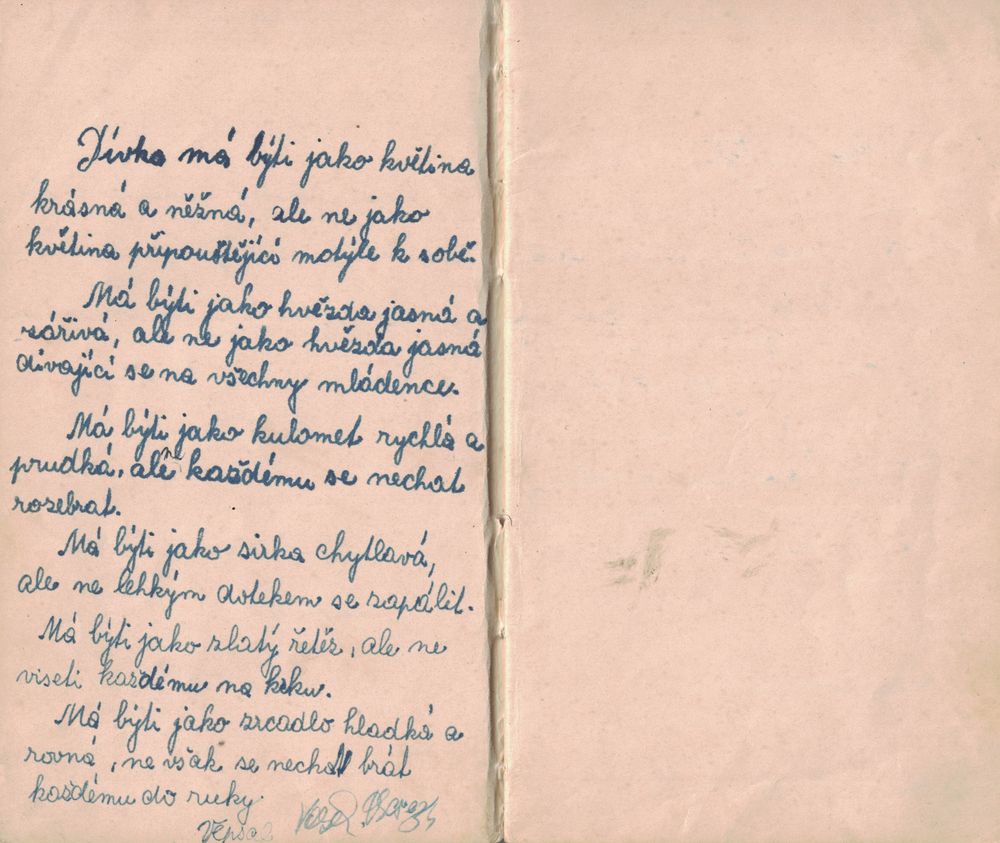 Dívka má býti jako květina
krásná a něžná, ale ne jako
květina připouštějící motýle k sobě.
Má býti jako hvězda jasná a
zářivá, ale ne jako hvězda jasná
dívající se na všechny mládence.
Má býti jako kulomet rychlá a
prudká, ale ne každému se nechat
rozebrat.
Má býti jako sirka chytlavá,
ale ne lehkým dotekem se zapálit.
Má býti jako zlatý řetěz, ale ne
viseti každému na krku.
Má býti jako zrcadlo hladká a
rovná, ne však se nechat brát
každému do ruky.